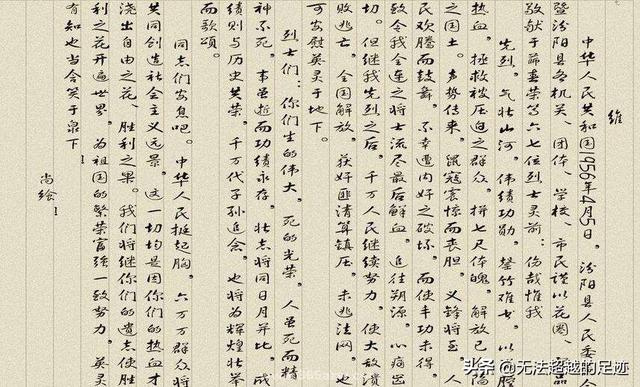 维
中华人民共和国1956年4月5日,汾阳县人民委
暨汾阳县各机关、团体、学校、市民谨以花圈、
敬献于薛垂荣等六七位烈士灵前:伤哉惟我
先烈,气壮山河,伟绩功勋,罄竹难书,以腾
热血,拯救被压迫之群众,拼七尺体魄,解放已
之国土。声势传来,鼠寇惊而丧胆,义锋将至,人
民欢腾而鼓舞。不幸遭内奸之破坏,而使丰功未得。
致令我全连之将士流尽最后鲜血。追往朔源,心痛
切。但继我先烈之后,千万人民继续努力,使大敌溃
败逃亡,全国解放。获奸匪清算镇压,未逃法网。也
可安慰英灵于地下。
烈士们:你们生的伟大,死的光荣。人虽死而精
神不死,事虽逝而功绩永存。壮志将同日月并比,成
绩则与历史共荣。千万代子孙追念,也将为辉煌壮举
而歌颂。
同志们安息吧。中华人民挺起胸,六万万群众将
共同创造社会主义远景。这一切均是因你们的热血才
浇出自由之花、胜利之果。我们将继你们的遗志使胜
利之花开遍世界。为祖国的繁荣富强一致努力。英灵
有知也当含笑于泉下!
尚绘!
头条 @无法超越的足迹